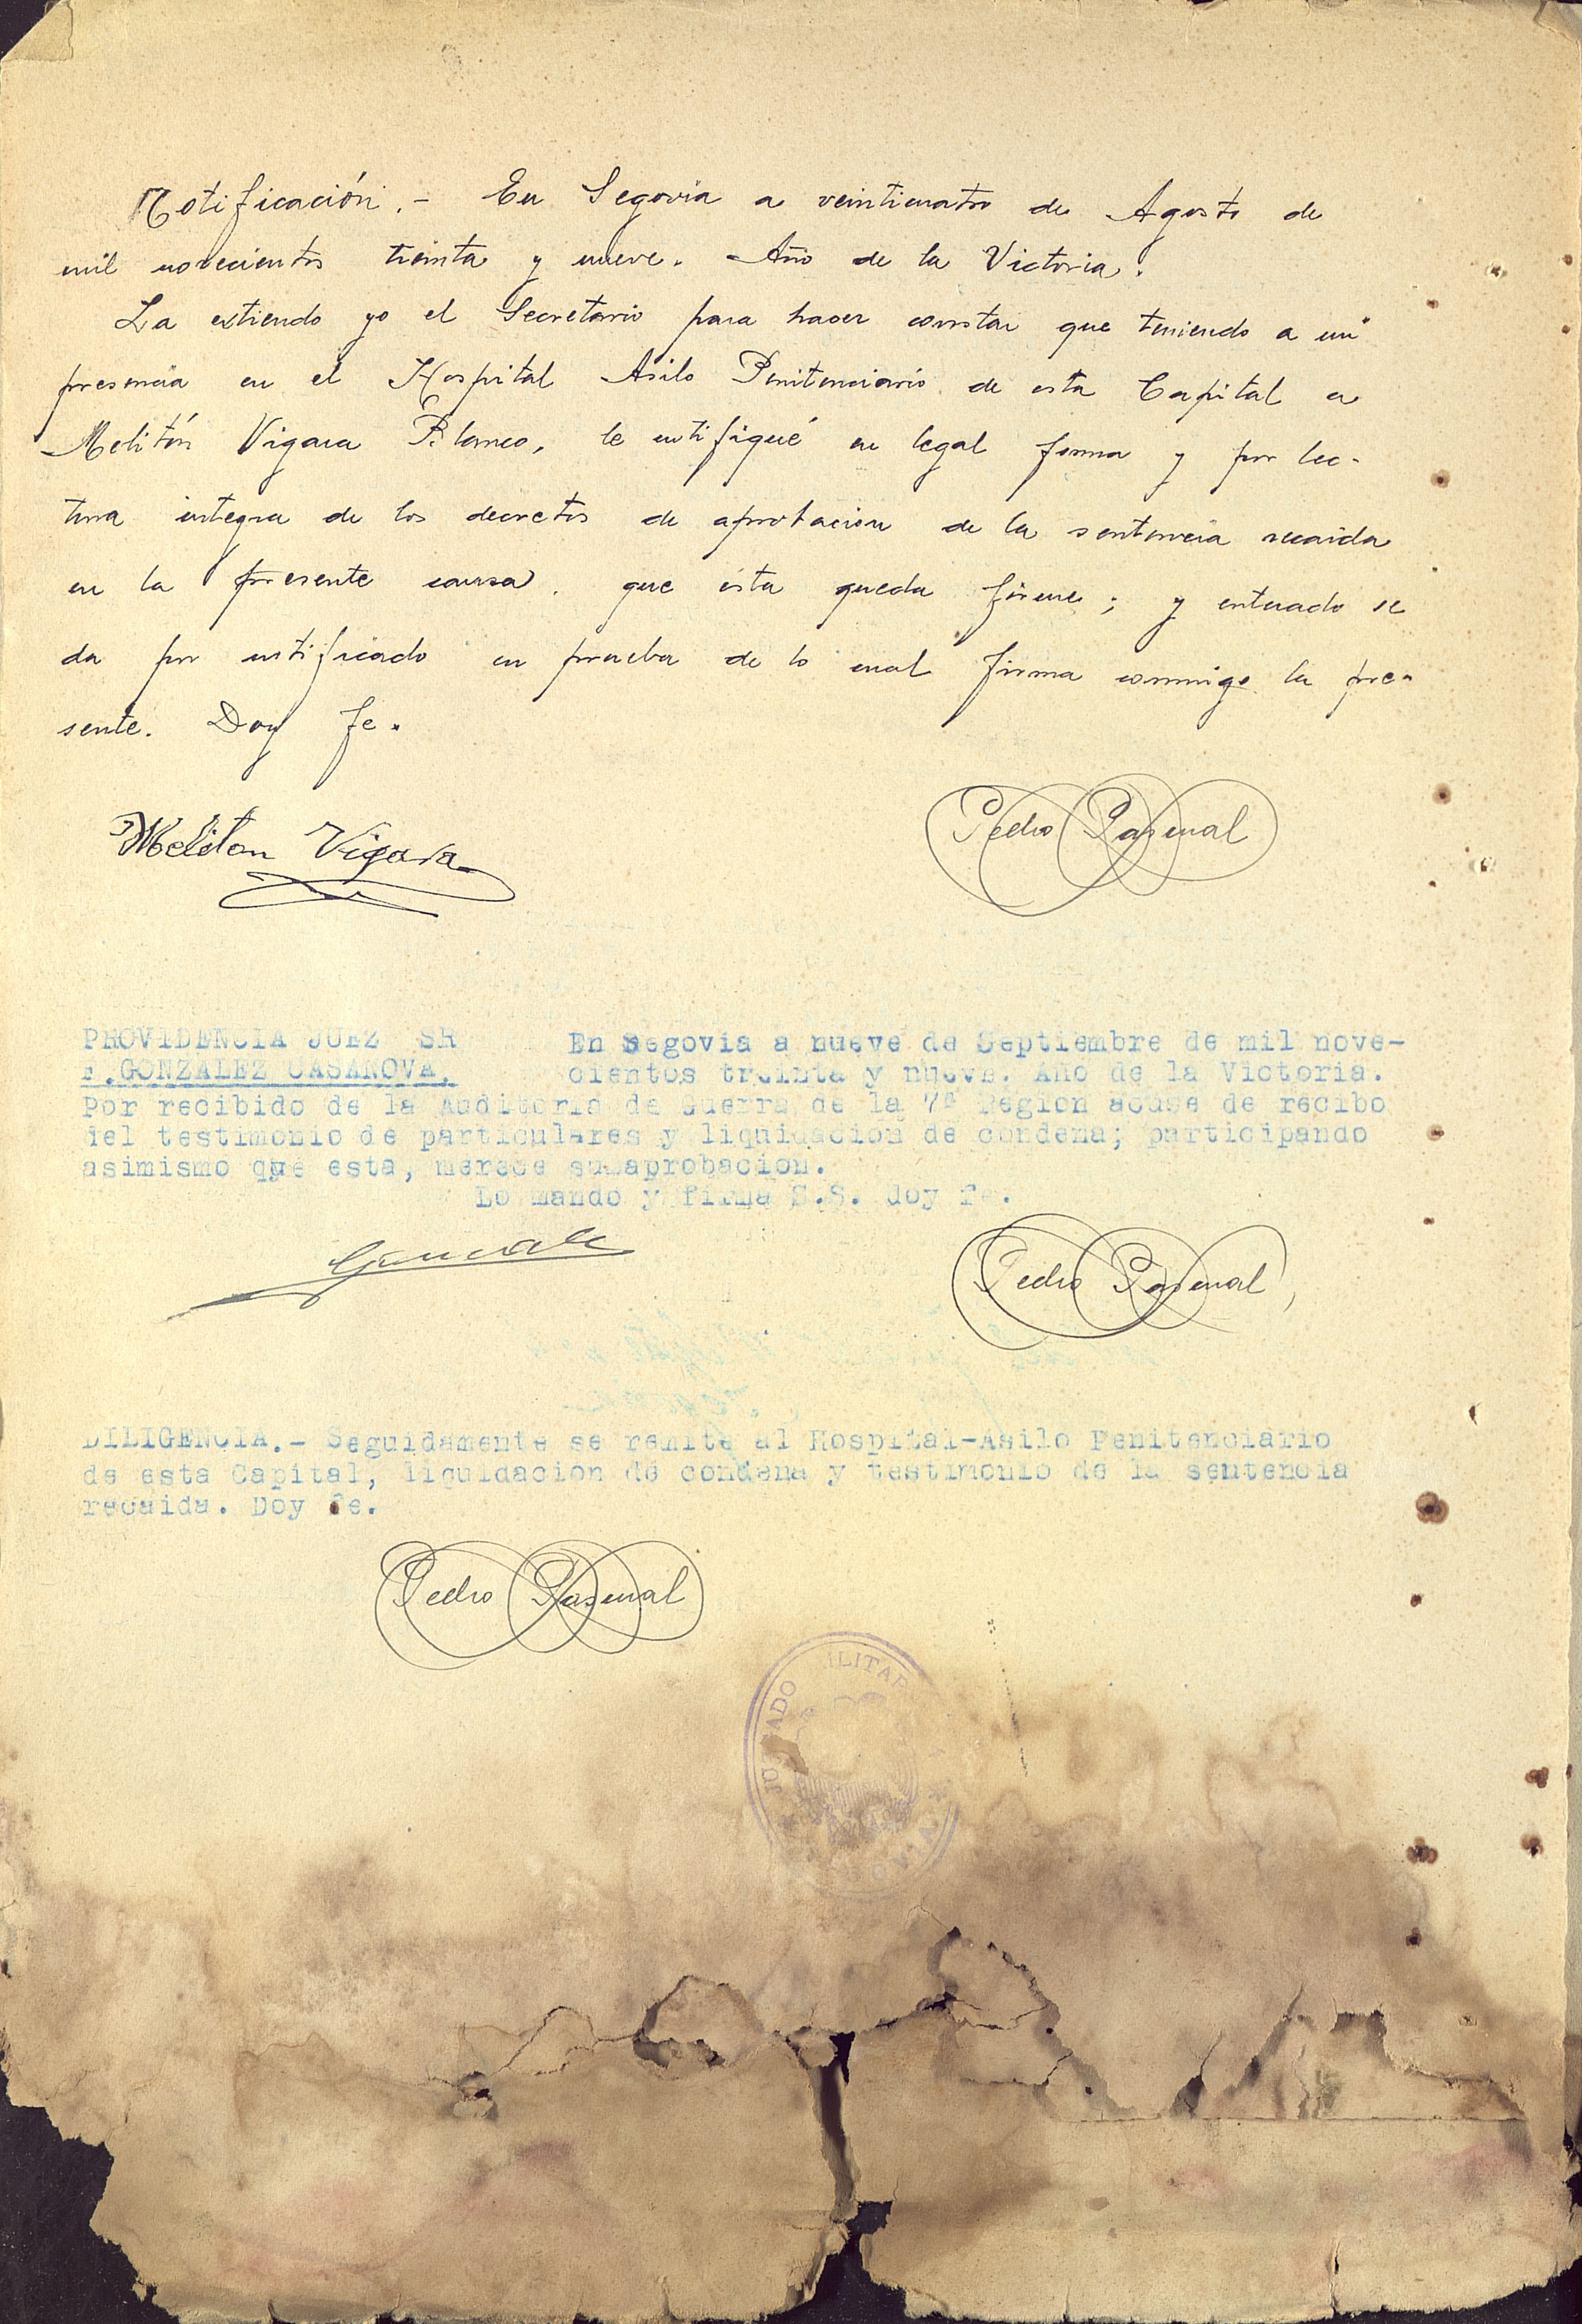 Notificación.- En Segovia a veinticuatro de Agosto de
mil novecientos treinta y nueve. Año de la Victoria.
La extiendo yo el Secretario para hacer constar que teniendo a mi
presencia en el Hospital Asilo Penitenciario de esta Capital a
Melitón Vigara Blanco, le notifiqué en legal forma y por lec-
tura integra de los decretos de aprobacion de la sentencia recaida
en la presente causa, que ésta queda firme; y enterado se
da por notificado en prueba de lo cual firma conmigo la pre-
sente. Doy fe.
Meliton Vigara
Pedro Pascual
PROVIDENCIA JUEZ SR
F.GONZALEZ CASANOVA.
En Segovia a nueve de Septiembre de mil nove-
cientos treinta y nueve. Año de la Victoria.
Por recibido de la Auditoria de Guerra de la 7ª Region acuse de recibo
del testimonio de particulares y liquidacion de condena; participando
asimismo que esta, merece su aprobacion.
Lo mando y firma S.S. doy fe.
Pedro Pascual
DILIGENCIA.- Seguidamente se remite al Hospital-Asilo Penitenciario
de esta Capital, liquidacion de condena y testimonio de la sentencia
recaida. Doy fe.
Pedro Pascual
JUZGADO MILITAR